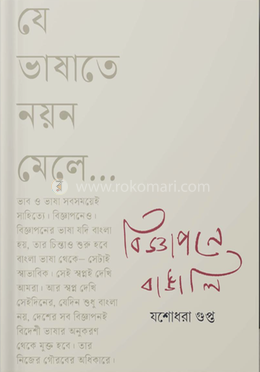 যে
ভাষাতে
নয়ন
মেলে...
ভাব ও ভাষা সবসময়েই
সাহিত্যে। বিজ্ঞাপনেও।
বিজ্ঞাপনের ভাষা যদি বাংলা
হয়, তার চিন্তাও শুরু হবে
বাংলা ভাষা থেকে— সেটাই
স্বাভাবিক। সেই স্বপ্নই দেখি
আমরা। আর স্বপ্ন দেখি
সেইদিনের, যেদিন শুধু বাংলা
নয়, দেশের সব বিজ্ঞাপনই
বিদেশী ভাষার অনুকরণ
থেকে মুক্ত হবে। তার
নিজের গৌরবের অধিকারে।
বিজ্ঞাপনে
বাঙালি
যশোধরা গুপ্ত
www.rokomari.com